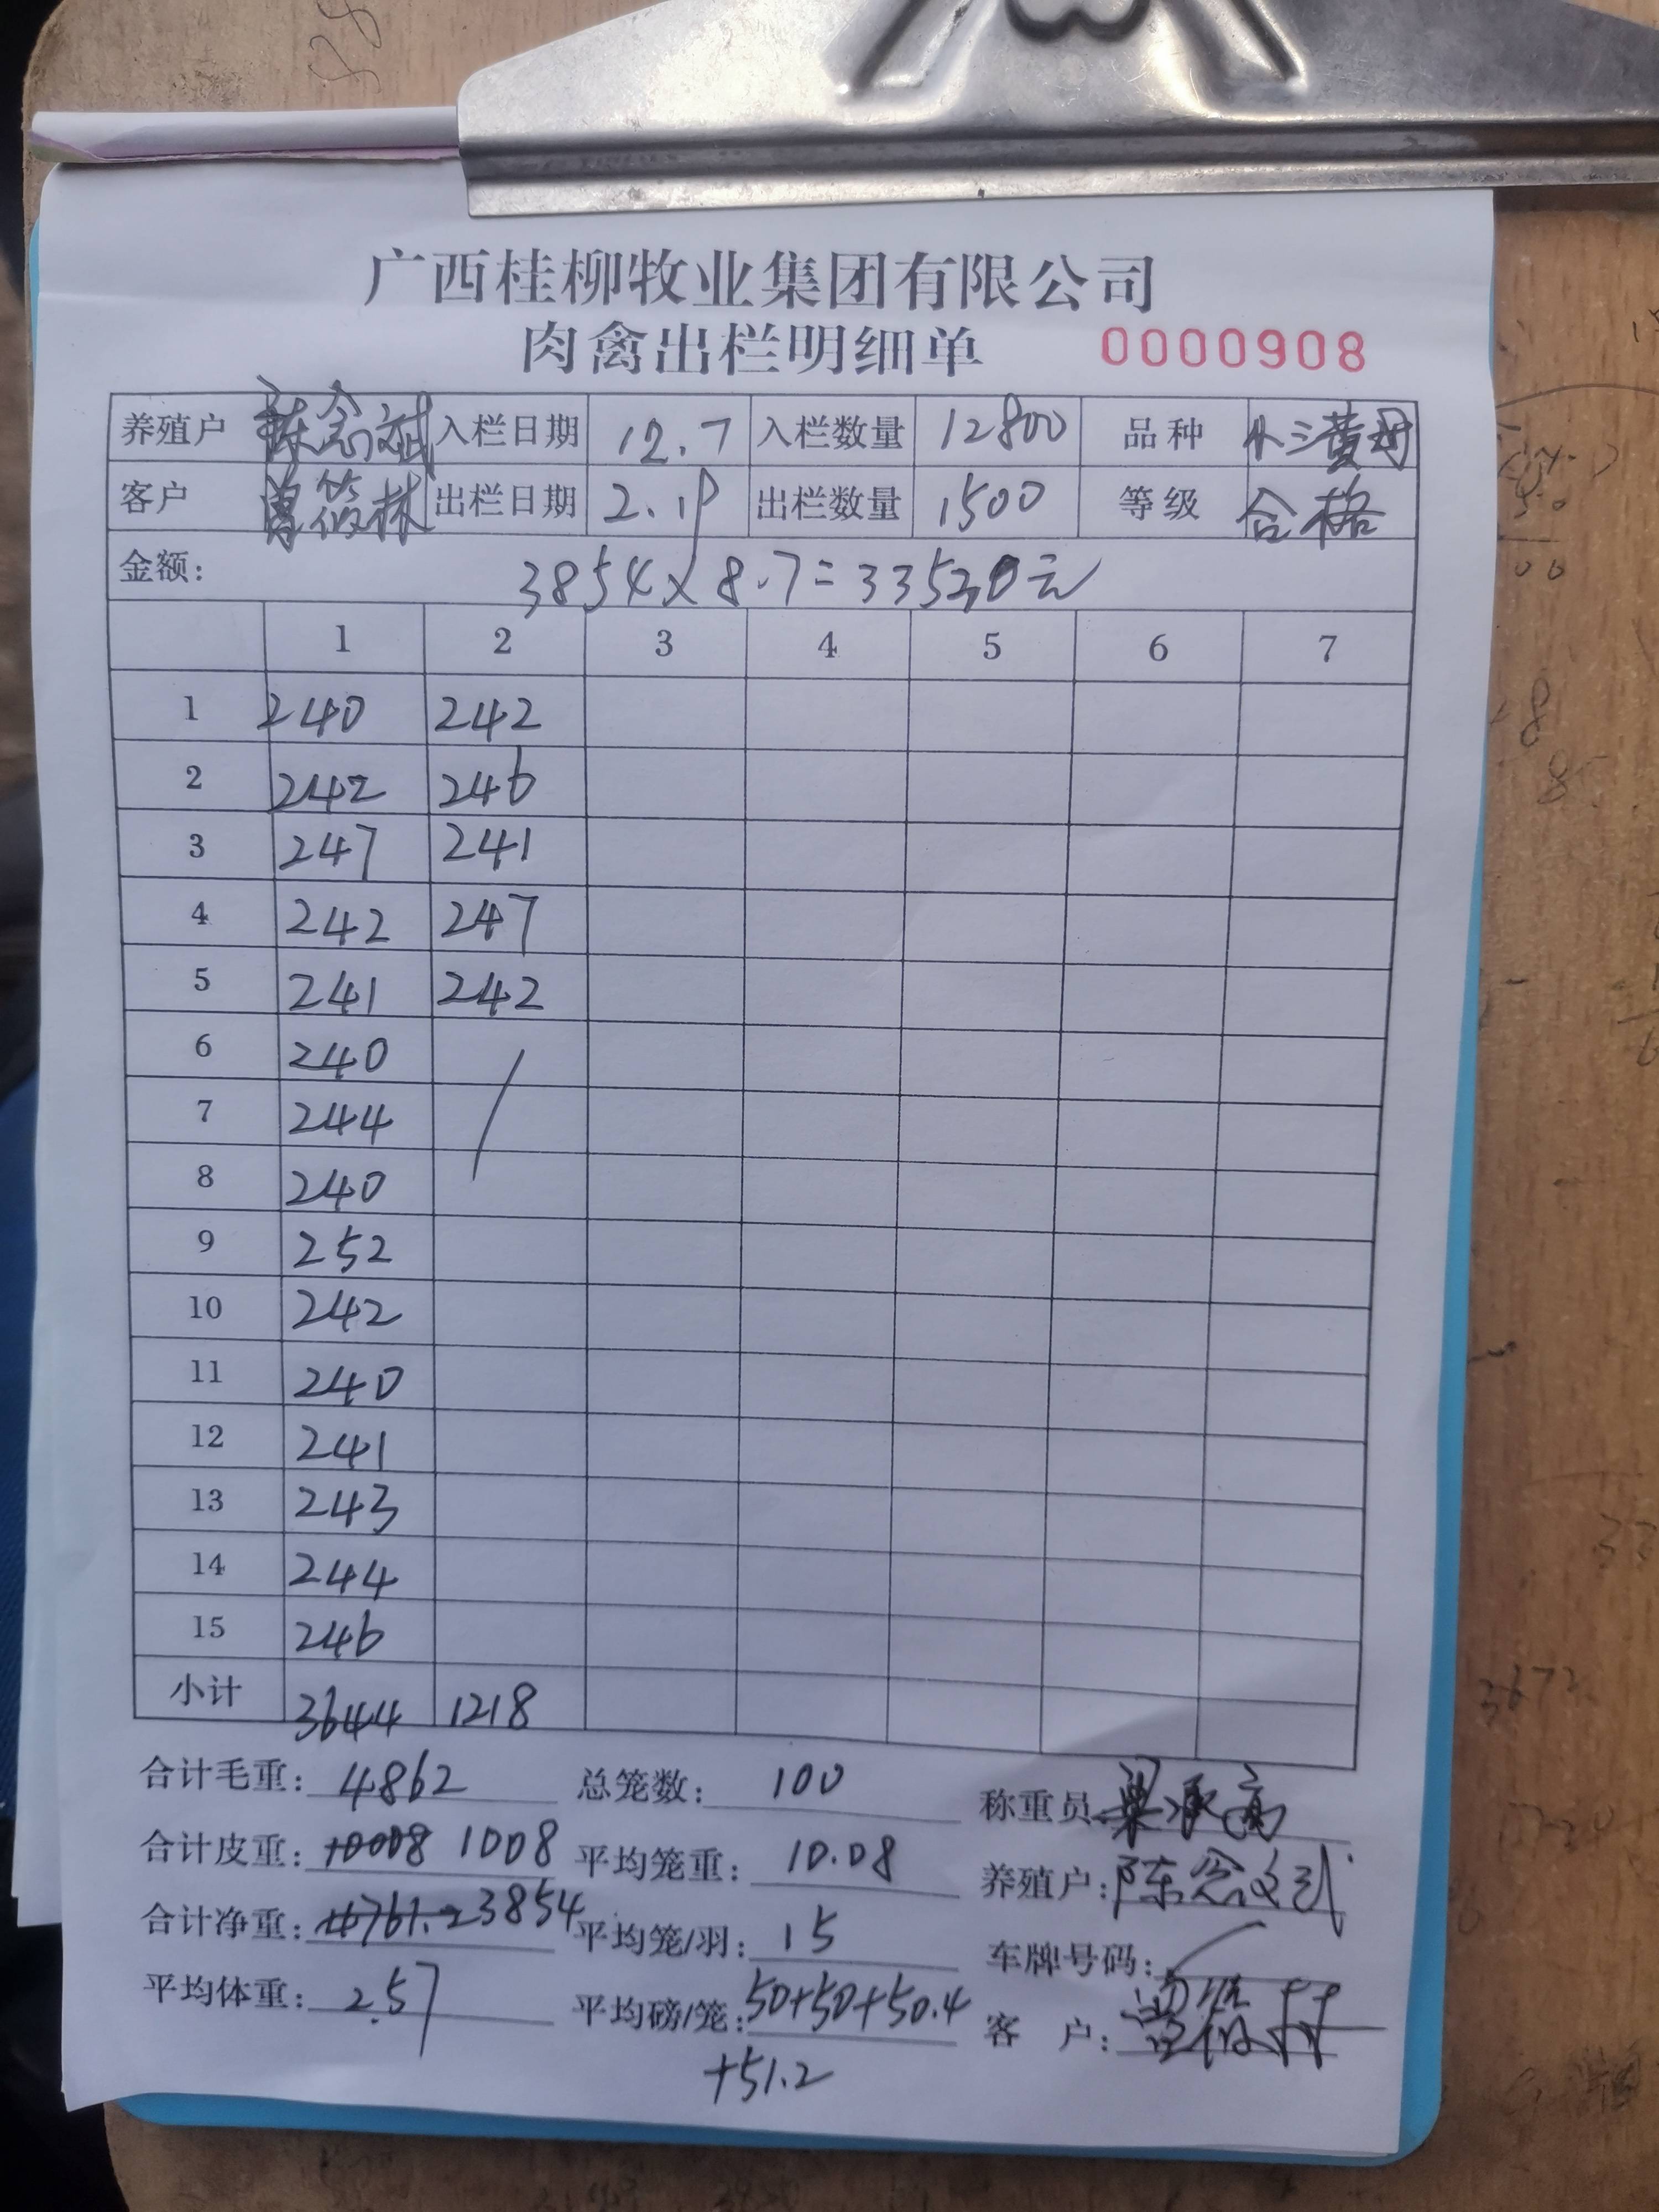 广西桂柳牧业集团有限公司
肉禽出栏明细单 0000908
养殖户 陈念斌 入栏日期 12.7 入栏数量 12800 品种
客户 曾筱林 出栏日期 2.19 出栏数量 1500 等级 合格
金额: 3854×8.7=33530元
1 2 3 4 5 6 7
1 240 242
2 242 246
3 247 241
4 242 247
5 241 242
6 240 /
7 244
8 240
9 252
10 242
11 240
12 241
13 243
14 244
15 246
小计 3644 1218
合计毛重: 4862 总笼数: 100 称重员 梁承高
合计皮重: 10008 1008 平均笼重: 10.08 养殖户: 陈念斌
合计净重: 4761.2 3854 平均笼/羽: 15 车牌号码: /
平均体重: 2.57 平均磅/笼: 50+50+50.4 客 户:
+51.2